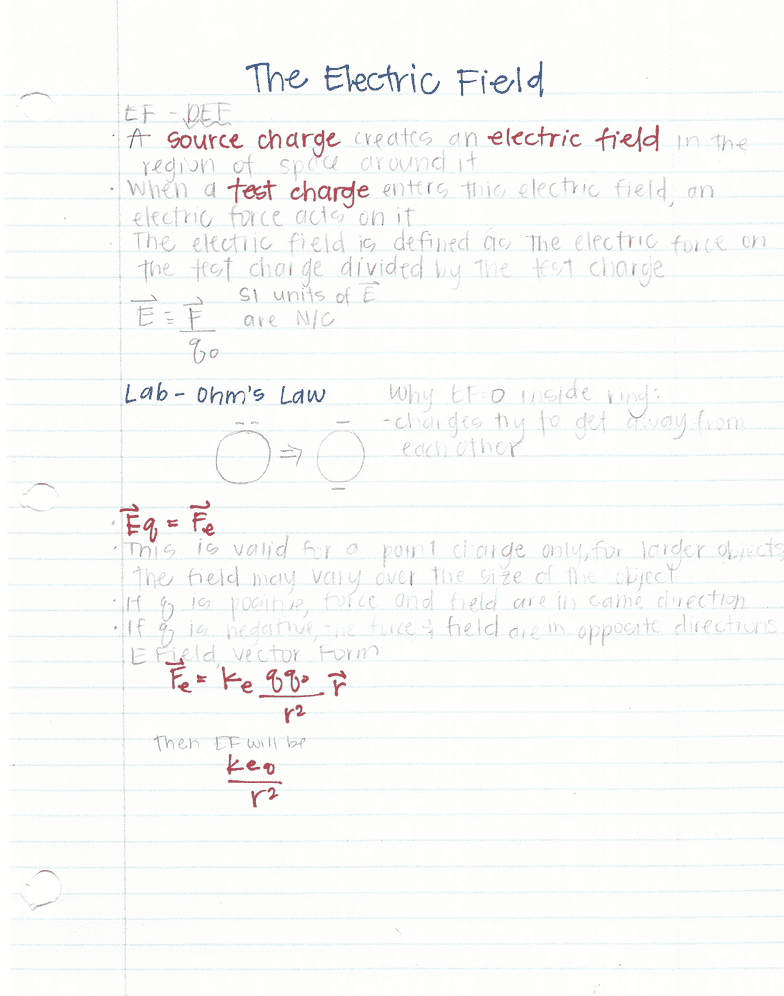 The Electric Field
EF - DEF
· A source charge creates an electric field in the
region of space around it
· When a test charge enters this electric field, an
electric force acts on it
· The electric field is defined as the electric force on
the test charge divided by the test charge
E⃗ = F⃗ / q₀
SI units of E⃗
are N/C
Lab - Ohm's Law
Why EF=0 inside ring:
- charges try to get away from
each other
- -
⇒
-
-
· E⃗q = F⃗e
· This is valid for a point charge only, for larger objects
the field may vary over the size of the object
· If q is positive, force and field are in same direction
· If q is negative, the force & field are in opposite directions
E Field, vector Form
F⃗e = ke qq₀ / r² r⃗
Then EF will be
keq / r²